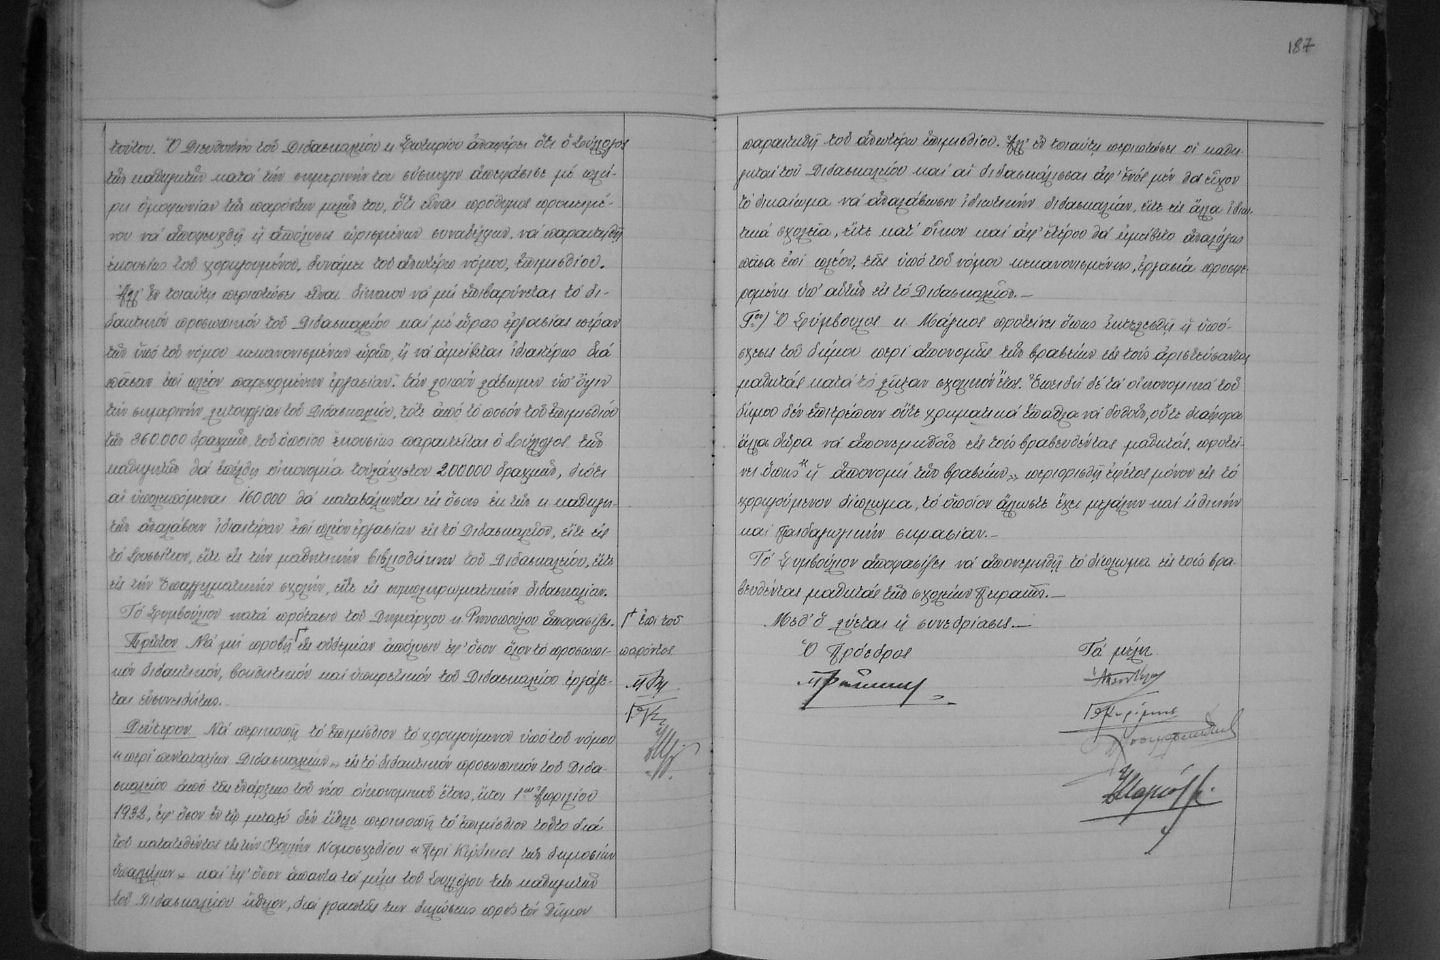 τούτου. Ὁ Διευθυντὴς τοῦ Διδασκαλείου κ. Σωτηρίου ἀναφέρει ὅτι ὁ Σύλλογος
τῶν καθηγητῶν κατὰ τὴν σημερινήν του σύσκεψιν ἀπεφάσισε μὲ πλή-
ρη ὁμοφωνίαν τῶν παρόντων μελῶν του, ὅτι εἶναι πρόθυμος προκειμέ-
νου νὰ ἀποφευχθῇ ἡ ἀπόλυσις ὡρισμένων συναδέλφων, νὰ παραιτηθῇ
ἑκουσίως τοῦ χορηγουμένου, δυνάμει τοῦ ἀνωτέρω νόμου, ἐπιμισθίου.
Ἀλλ' ἐν τοιαύτῃ περιπτώσει εἶναι δίκαιον νὰ μὴ ἐπιβαρύνεται τὸ δι-
δακτικὸν προσωπικὸν τοῦ Διδασκαλείου καὶ μὲ ὥρας ἐργασίας πέραν
τῶν ὑπὸ τοῦ νόμου κεκανονισμένων ὡρῶν, ἢ νὰ ἀμείβεται ἰδιαιτέρως διὰ
πᾶσαν ἐπὶ πλέον παρεχομένην ἐργασίαν. Ἐὰν λοιπὸν λάβωμεν ὑπ' ὄψιν
τὴν σημερινὴν λειτουργίαν τοῦ Διδασκαλείου, τότε ἀπὸ τὸ ποσὸν τοῦ ἐπιμισθίου
τῶν 360.000 δραχμῶν, τοῦ ὁποίου ἑκουσίως παραιτεῖται ὁ Σύλλογος τῶν
καθηγητῶν θὰ ἐπέλθῃ οἰκονομία τοὐλάχιστον 200.000 δραχμῶν, διότι
αἱ ὑπολειπόμεναι 160.000 θὰ καταβάλωνται εἰς ὅσους ἐκ τῶν κ. καθηγη-
τῶν ἀναλάβουν ἰδιαιτέραν ἐπὶ πλέον ἐργασίαν εἰς τὸ Διδασκαλεῖον, εἴτε εἰς
τὸ Συσσίτιον, εἴτε εἰς τὴν μαθητικὴν βιβλιοθήκην τοῦ Διδασκαλείου, εἴτε
εἰς τὴν Ἐπαγγελματικὴν σχολήν, εἴτε εἰς συμπληρωματικὴν διδασκαλίαν.
Τὸ Συμβούλιον κατὰ πρότασιν τοῦ Δημάρχου κ. Ρινοπούλου ἀποφασίζει.
Πρῶτον Νὰ μὴ προβῇ Γ εἰς οὐδεμίαν ἀπόλυσιν ἐφ' ὅσον ὅλον τὸ προσωπι-
Γ ἐπὶ τοῦ
παρόντος
κὸν διδακτικόν, βοηθητικὸν καὶ ὑπηρετικὸν τοῦ Διδασκαλείου ἐργάζε-
ται εὐσυνειδήτως.
Δεύτερον Νὰ περικοπῇ τὸ ἐπιμίσθιον τὸ χορηγούμενον ὑπὸ τοῦ νόμου
«περὶ πενταταξίων Διδασκαλείων» εἰς τὸ διδακτικὸν προσωπικὸν τοῦ Διδα-
σκαλείου ἀπὸ τῆς ἐνάρξεως τοῦ νέου οἰκονομικοῦ ἔτους, ἤτοι 1ης Ἀπριλίου
1932, ἐφ' ὅσον ἐν τῷ μεταξὺ δὲν ἤθελε περικοπῇ τὸ ἐπιμίσθιον τοῦτο διὰ
τοῦ κατατεθέντος εἰς τὴν Βουλὴν Νομοσχεδίου «Περὶ Κώδικος τῶν δημοσίων
ὑπαλλήλων» καὶ ἐφ' ὅσον ἅπαντα τὰ μέλη τοῦ Συλλόγου τῶν καθηγητῶν
τοῦ Διδασκαλείου ἤθελον, διὰ γραπτῆς των δηλώσεως πρὸς τὸν Δῆμον
187
παραιτηθῆ τοῦ ἀνωτέρω ἐπιμισθίου. Ἀλλ' ἐν τοιαύτῃ περιπτώσει οἱ καθη-
γηταὶ τοῦ Διδασκαλείου καὶ αἱ διδασκάλισσαι ἀφ' ἑνὸς μὲν θὰ εἶχον
τὸ δικαίωμα νὰ ἀναλάβωσιν ἰδιωτικὴν διδασκαλίαν, εἴτε εἰς ἄλλα ἰδιω-
τικὰ σχολεῖα, εἴτε κατ' οἶκον καὶ ἀφ' ἑτέρου θὰ ἠμείβετο ἀναλόγως
πᾶσα ἐπὶ πλέον, τῆς ὑπὸ τοῦ νόμου κεκανονισμένης, ἐργασία προσφε-
ρομένη ὑπ' αὐτῶν εἰς τὸ Διδασκαλεῖον.—
Γον) Ὁ Σύμβουλος κ. Μάγκος προτείνει ὅπως ἐκτελεσθῇ ἡ ὑπό-
σχεσις τοῦ δήμου περὶ ἀπονομῆς τῶν βραβείων εἰς τοὺς ἀριστεύσαντας
μαθητὰς κατὰ τὸ λῆξαν σχολικὸν ἔτος. Ἐπειδὴ δὲ τὰ οἰκονομικὰ τοῦ
δήμου δὲν ἐπιτρέπουν οὔτε χρηματικὰ ἔπαθλα νὰ δοθοῦν, οὔτε διάφορα
ἄλλα δῶρα νὰ ἀπονεμηθοῦν εἰς τοὺς βραβευθέντας μαθητάς, προτεί-
νει ὅπως «ἡ ἀπονομὴ τῶν βραβείων» περιορισθῇ ἐφέτος μόνον εἰς τὸ
χορηγούμενον δίπλωμα, τὸ ὁποῖον ἄλλωστε ἔχει μεγάλην καὶ ἠθικὴν
καὶ παιδαγωγικὴν σημασίαν.—
Τὸ Συμβούλιον ἀποφασίζει νὰ ἀπονεμηθῇ τὸ δίπλωμα εἰς τοὺς βρα-
βευθέντας μαθητὰς τῶν σχολείων Πειραιῶς.—
Μεθ' ὃ λύεται ἡ συνεδρίασις.—
Ὁ Πρόεδρος
Τὰ μέλη